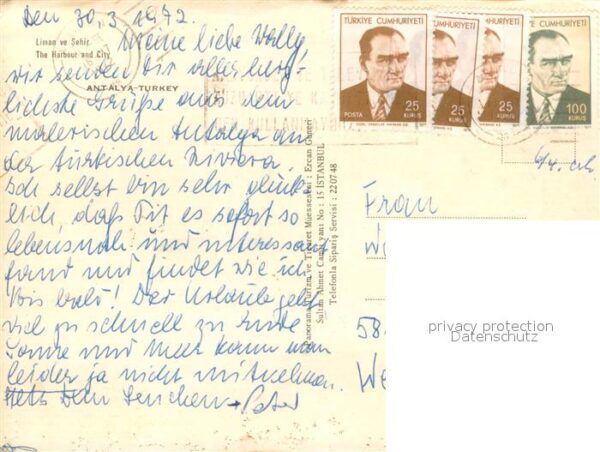 Den 30.3.1972.
Liman ve Şehir
The Harbour and City
ANTALYA-TURKEY
Meine liebe
wir senden Dir allerherz-
lichste Grüße aus dem
malerischen Antalya an
der türkischen Riviera
Ich selbst bin sehr glück-
lich, daß Pit es sofort so
lebensnah und interessant
fand und findet wie ich
Bis bald! Der Urlaub geht
viel zu schnell zu Ende
Sonne und Meer kann man
leider ja nicht mitnehmen.
TÜRKİYE CUMHURİYETİ
POSTA
25
KURUŞ
CUMHURİYETİ
25
KURUŞ
25
KURUŞ
100
KURUŞ
Frau
58
privacy protection
Datenschutz
Ticaret Müessesesi : Ercan
Sultan Ahmet No : 15 İSTANBUL
Telefonla Sipariş Servisi : 22 07 48